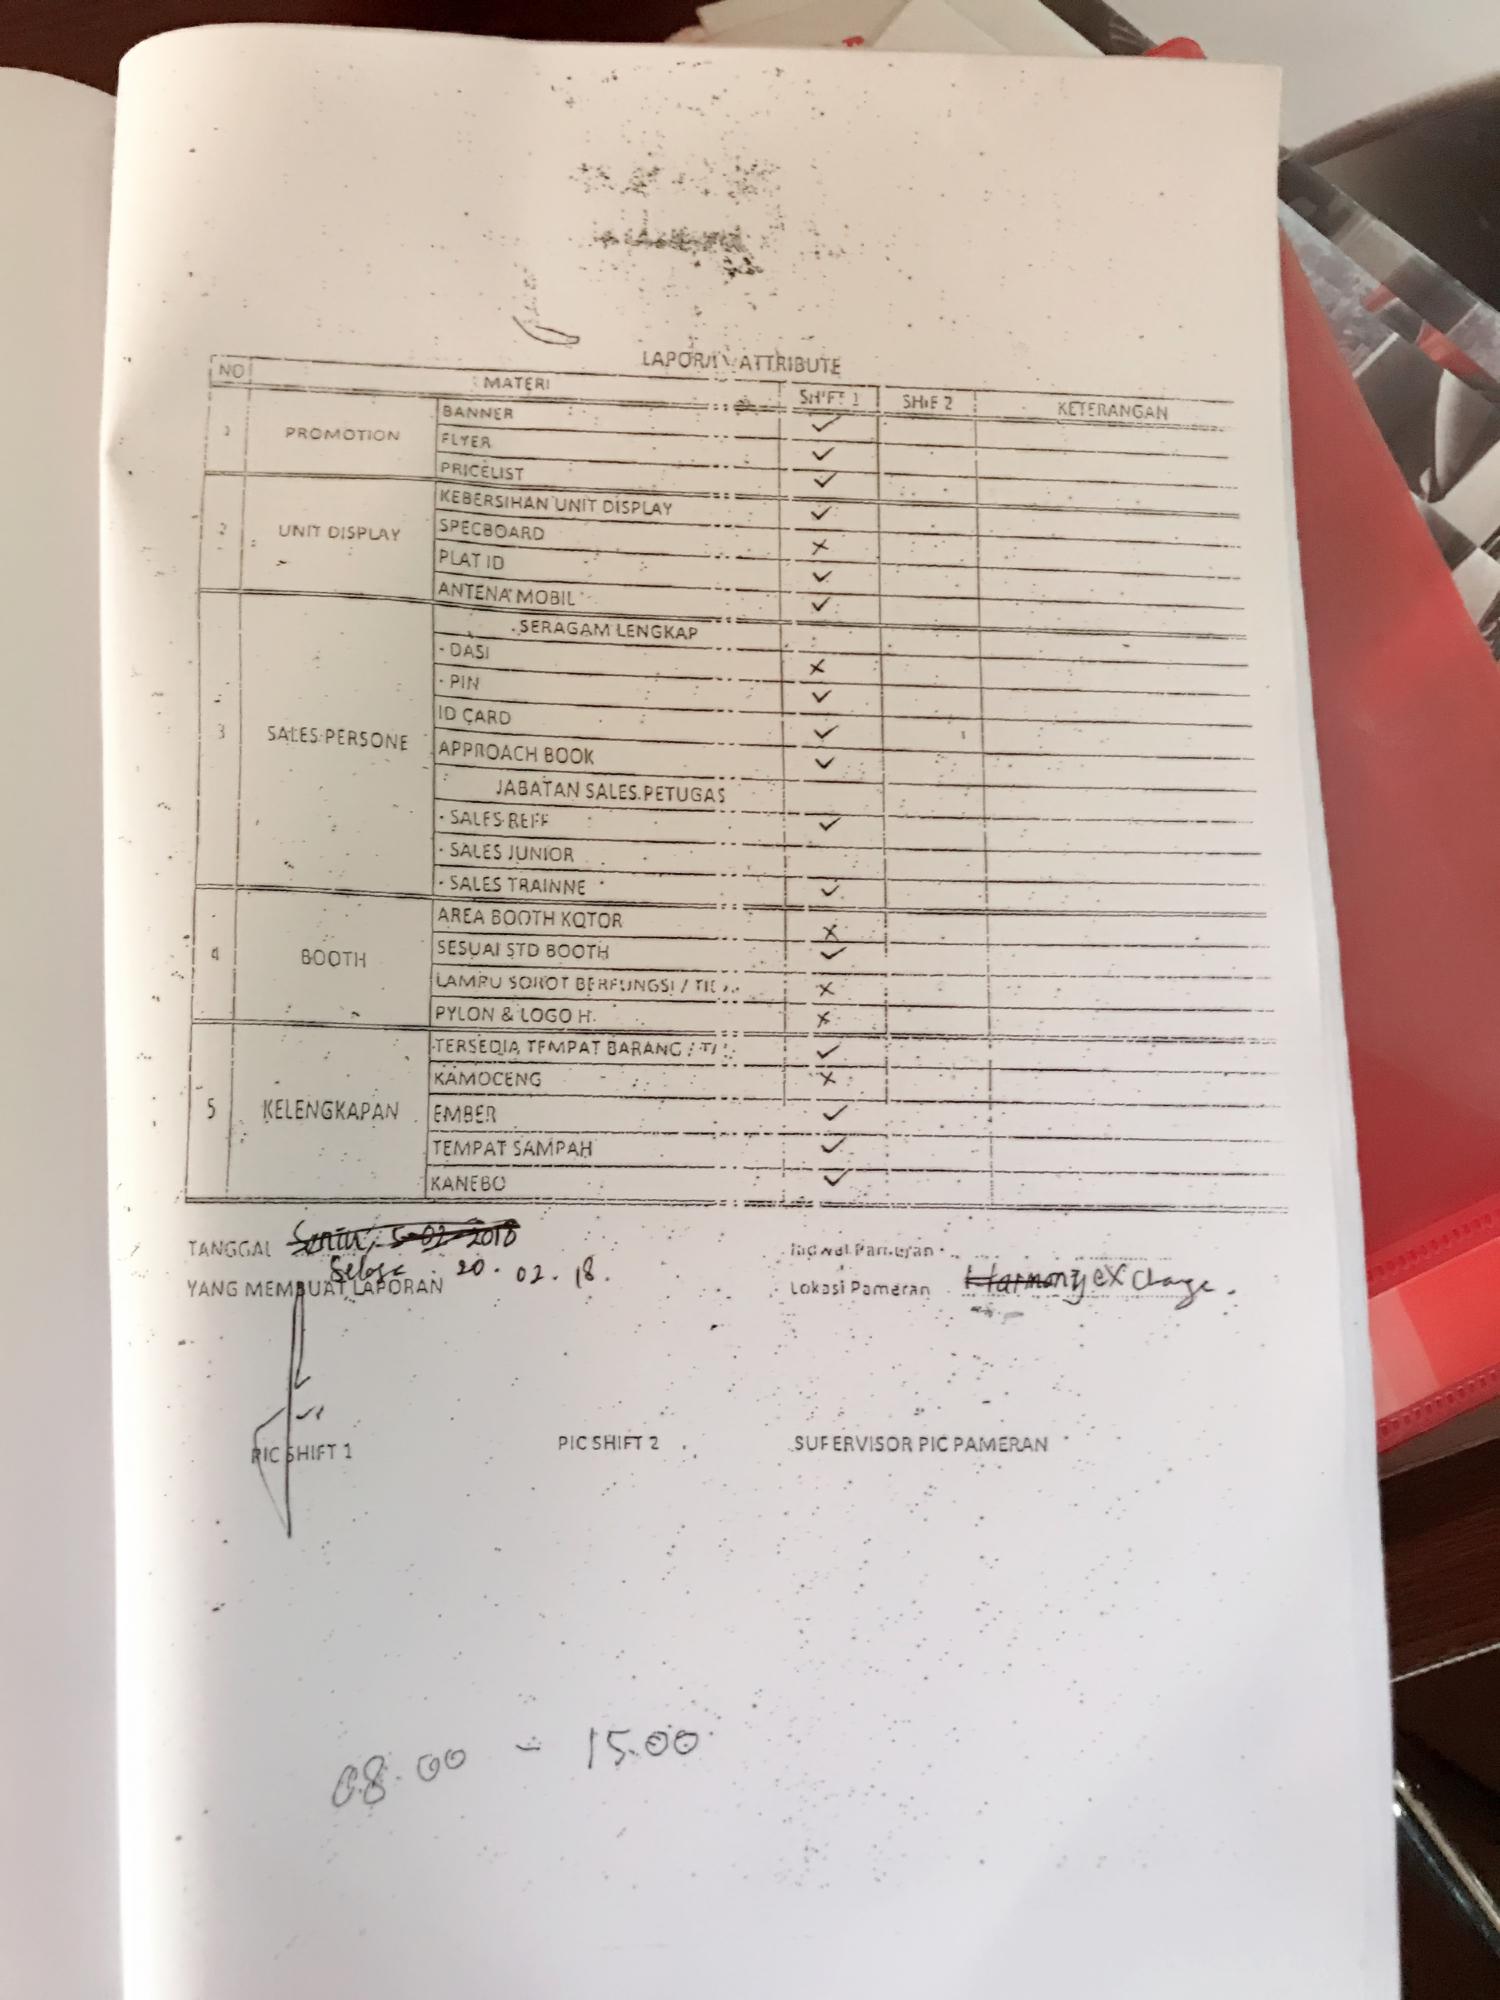 LAPORAN ATTRIBUTE
NO MATERI SHIFT 1 SHIF 2 KETERANGAN
1 PROMOTION BANNER ✓
FLYER ✓
PRICELIST ✓
2 UNIT DISPLAY KEBERSIHAN UNIT DISPLAY ✓
SPECBOARD ×
PLAT ID ✓
ANTENA MOBIL ✓
3 SALES PERSONE SERAGAM LENGKAP
- DASI ×
- PIN ✓
ID CARD ✓
APPROACH BOOK ✓
JABATAN SALES PETUGAS
- SALES REFF ✓
- SALES JUNIOR
- SALES TRAINNE ✓
4 BOOTH AREA BOOTH KOTOR ×
SESUAI STD BOOTH ✓
LAMPU SOROT BERFUNGSI / ×
PYLON & LOGO H ×
5 KELENGKAPAN TERSEDIA TEMPAT BARANG / ✓
KAMOCENG ×
EMBER ✓
TEMPAT SAMPAH ✓
KANEBO ✓
TANGGAL Senin, 5-02-2018 Jadwal Pameran
Selasa 20.02.18.
YANG MEMBUAT LAPORAN Lokasi Pameran Harmony exchange.
PIC SHIFT 1 PIC SHIFT 2 SUPERVISOR PIC PAMERAN
08.00 - 15.00